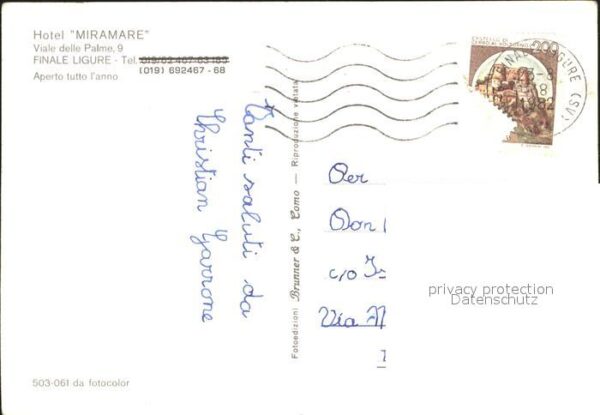 Hotel "MIRAMARE"
Viale delle Palme, 9
FINALE LIGURE - Tel. 019/62 467-63 183
(019) 692467 - 68
Aperto tutto l'anno
Tanti saluti da
Christian Garrone
Fotoedizioni Brunner & C., Como — Riproduzione vietata
200
1982
(SV)
Per
Don
c/o
Via
privacy protection
Datenschutz
503-061 da fotocolor